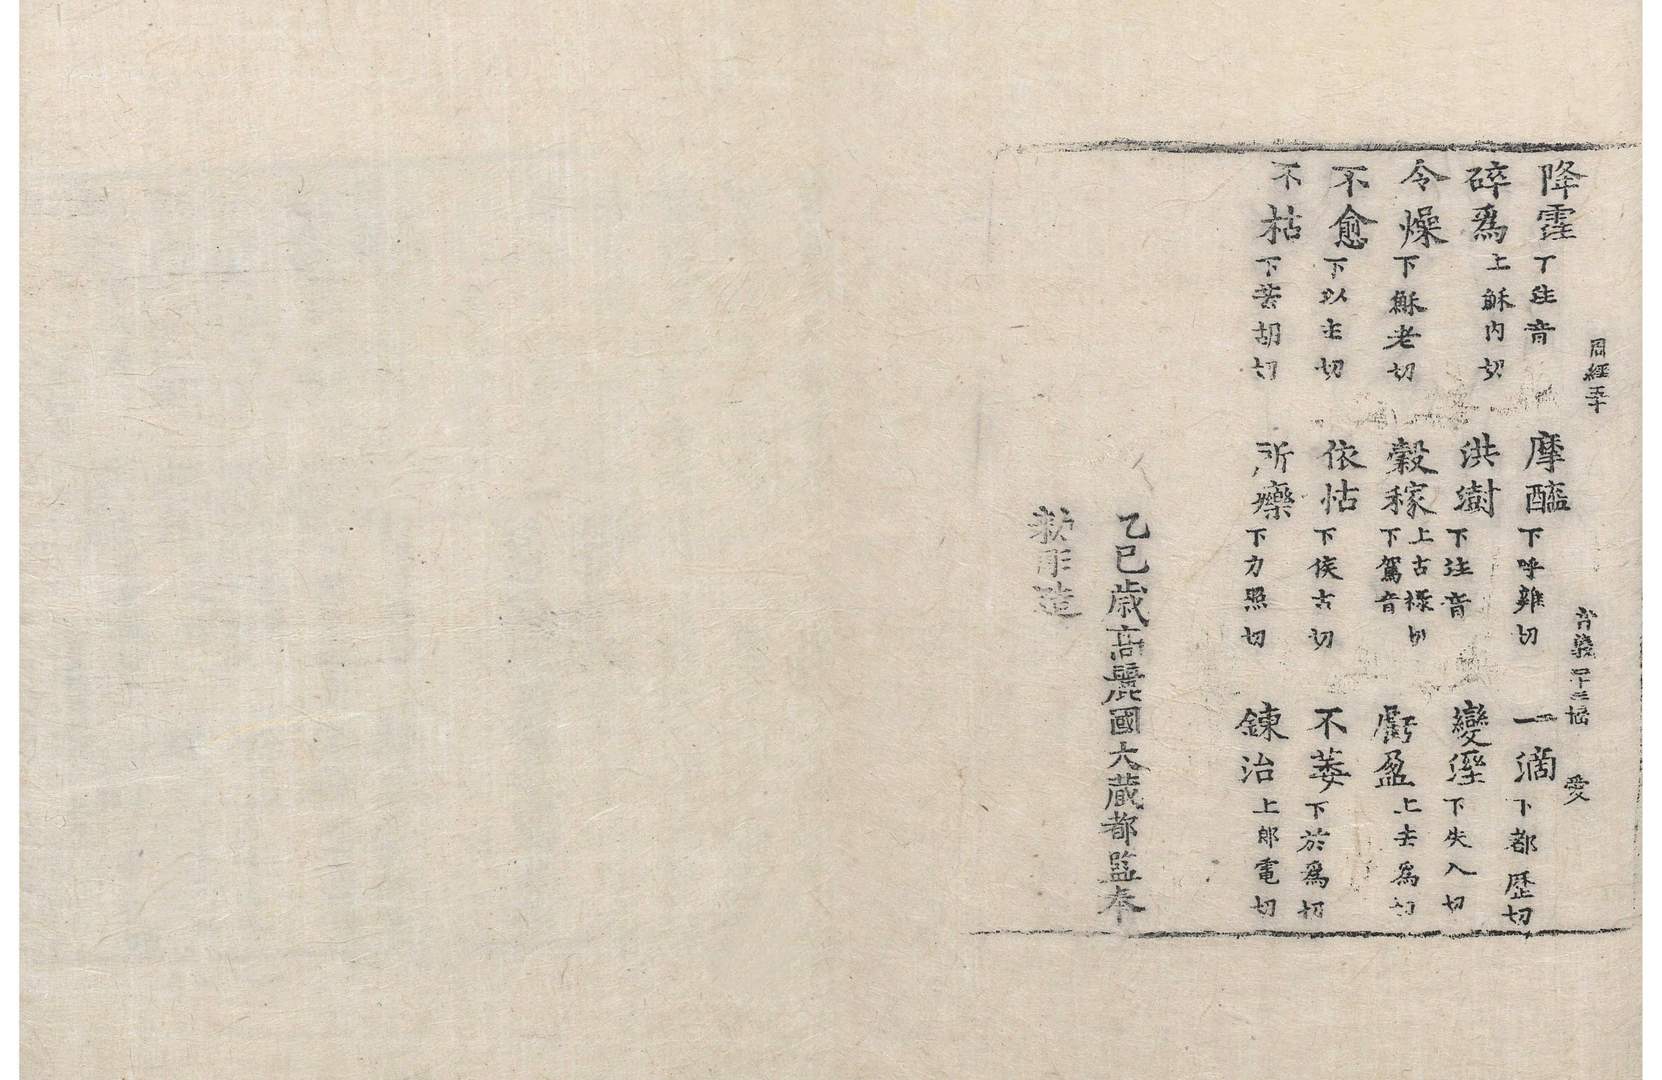 降霔下注音　摩醯下呼雞切　一滴下都歷切
碎爲上穌內切　洪澍下注音　變溼下失入切
令燥下穌老切　穀稼上古祿切下駕音　虧盈上去爲切
不愈下以主切　依怙下侯古切　不萎下於爲切
不枯下苦胡切　所療下力照切　鍊治上郎電切
乙巳歲高麗國大藏都監奉
敕彫造